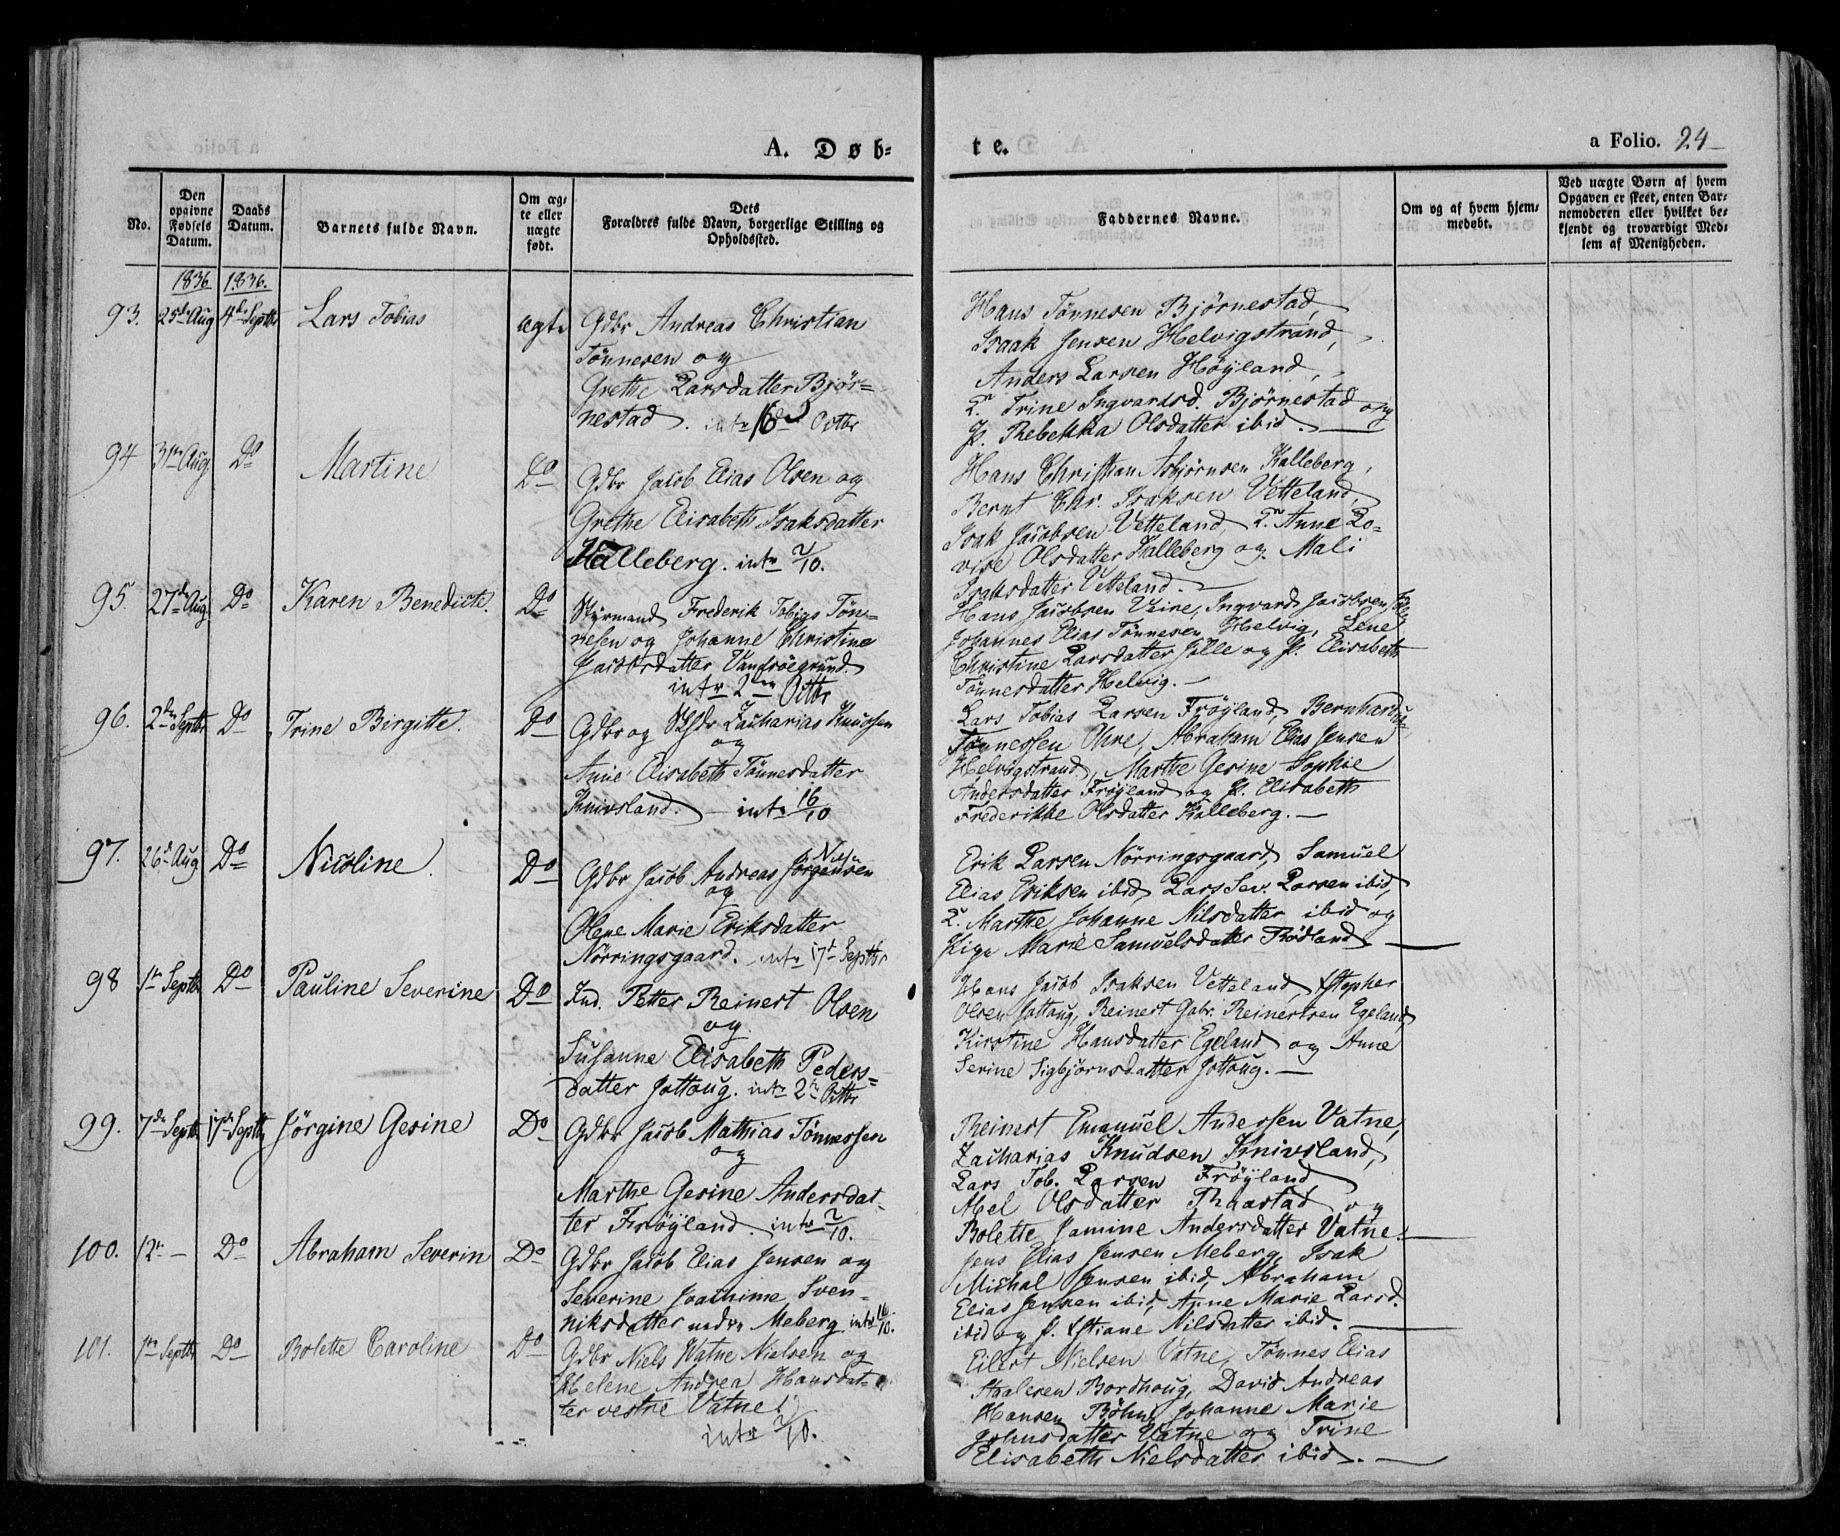 A. Døb-
te.
a Folio. 24
No.
Den opgivne Fødsels Datum.
Daabs Datum.
Barnets fulde Navn.
Om ægte eller uægte født.
Dets Forældres fulde Navn, borgerlige Stilling og Opholdssted.
Faddernes Navne.
Om og af hvem hjemmedøbt.
Ved uægte Børn af hvem Opgaven er skeet, enten Barnemoderen eller hvilket bekjendt og troværdigt Medlem af Menigheden.
1836 1836.
93. 25de Aug 4de Septbr Lars Tobias ægte Gdbr Andreas Christian
Tönnesen og
Grethe Larsdatter Björ=
nestad. intr 16de Octbr
Hans Tönnesen Björnestad,
Isaak Jensen Helvigstrand,
Anders Larsen Höyland,
Trine Ingvardsd. Björnestad og
P. Rebekka Olsdatter ibid.
94 31te Aug Do Martine Do Gdbr Jacob Elias Olsen og
Grethe Elisabeth Isaksdatter
Halleberg. intr 2/10.
Hans Christian Asbjörnsen Kalleberg,
Bernt Chr. Isaksen Vetteland,
Isak Jacobsen Vetteland, Anne Lo-
vise Olsdatter Kalleberg og Mali
Isaksdatter Vetteland.
95. 27de Aug Do Karen Benedicte. Do Styrmand Frederik Tobias Tön-
nesen og Johanne Christine
Jacobsdatter Vandsöegrund.
intr 2den Octbr
Hans Jacobsen Veire, Ingvard Jacobsen
Johannes Elias Tönnesen Helvig, Lene
Christine Larsdatter Jille og P. Elisabeth
Tönnesdatter Helvig.
96. 2den Septbr Do Trine Birgitte. Do Gdbr og Zacharias Knudsen
og
Anne Elisabeth Tönnesdatter
Knivsland. intr 16/10
Lars Tobias Larsen Fröyland, Bernhard
Tönnessen Ohre, Abraham Elias Jensen
Helvigstrand, Marthe Gesine Sophie
Andersdatter Fröyland og P. Elisabeth
Frederikke Olsdatter Kalleberg.
97. 26de Aug Do Nicoline. Do Gdbr Jacob Andreas Jörgensen
og
Olene Marie Eriksdatter
Nörringsgaard. intr 17de Septbr
Erik Larsen Nörringsgaard, Samuel
Elias Eriksen ibid, Lars Sev. Larsen ibid,
Marthe Johanne Nilsdatter ibid og
Pige Marie Samuelsdatter Rödland
98 1te Septbr Do Pauline Severine Do Ind. Petter Reinert Olsen
og
Susanne Elisabeth Peders=
datter Jottoug. intr 2den Octbr
Hans Jacob Isaksen Vetteland,
Olsen Jottoug, Reinert Gabr. Reinertsen Egeland,
Kirstine Hansdatter Egeland og Anne
Serine Sigbjörnsdatter Jottoug.
99. 7de Septbr 17de Septbr Jörgine Gesine Do Gdbr Jacob Mathias Tönnessen
og
Marthe Gesine Andersdat-
ter Fröyland. intr 2/10.
Reinert Emanuel Anderssen Vatne,
Zacharias Knudsen Knivsland,
Lars Tob. Larsen Fröyland
Abel Olsdatter Raastad og
Bolette Jamine Andersdatter Vatne.
100. 12te Do Abraham Severin Do Gdbr Jacob Elias Jensen og
Severine Joachime Sven-
niksdatter nedre Meberg intr 16/10.
Jens Elias Jensen Meberg, Isak
Michal Jensen ibid, Abraham
Elias Jensen ibid, Anne Marie Larsd.
ibid og Nilsdatter ibid.
101. 1te Septbr Do Bolette Caroline Do Gdbr Niels Watne Nielsen og
Helene Andrea Hansdat-
ter vestre Vatne.
intr 2/10.
Eilert Nielsen Vatne, Tönnes Elias
Staalesen Bordhoug, David Andreas
Hansen Böhn, Johanne Marie
Johnsdatter Vatne og Trine
Elisabeth Nielsdatter ibid.